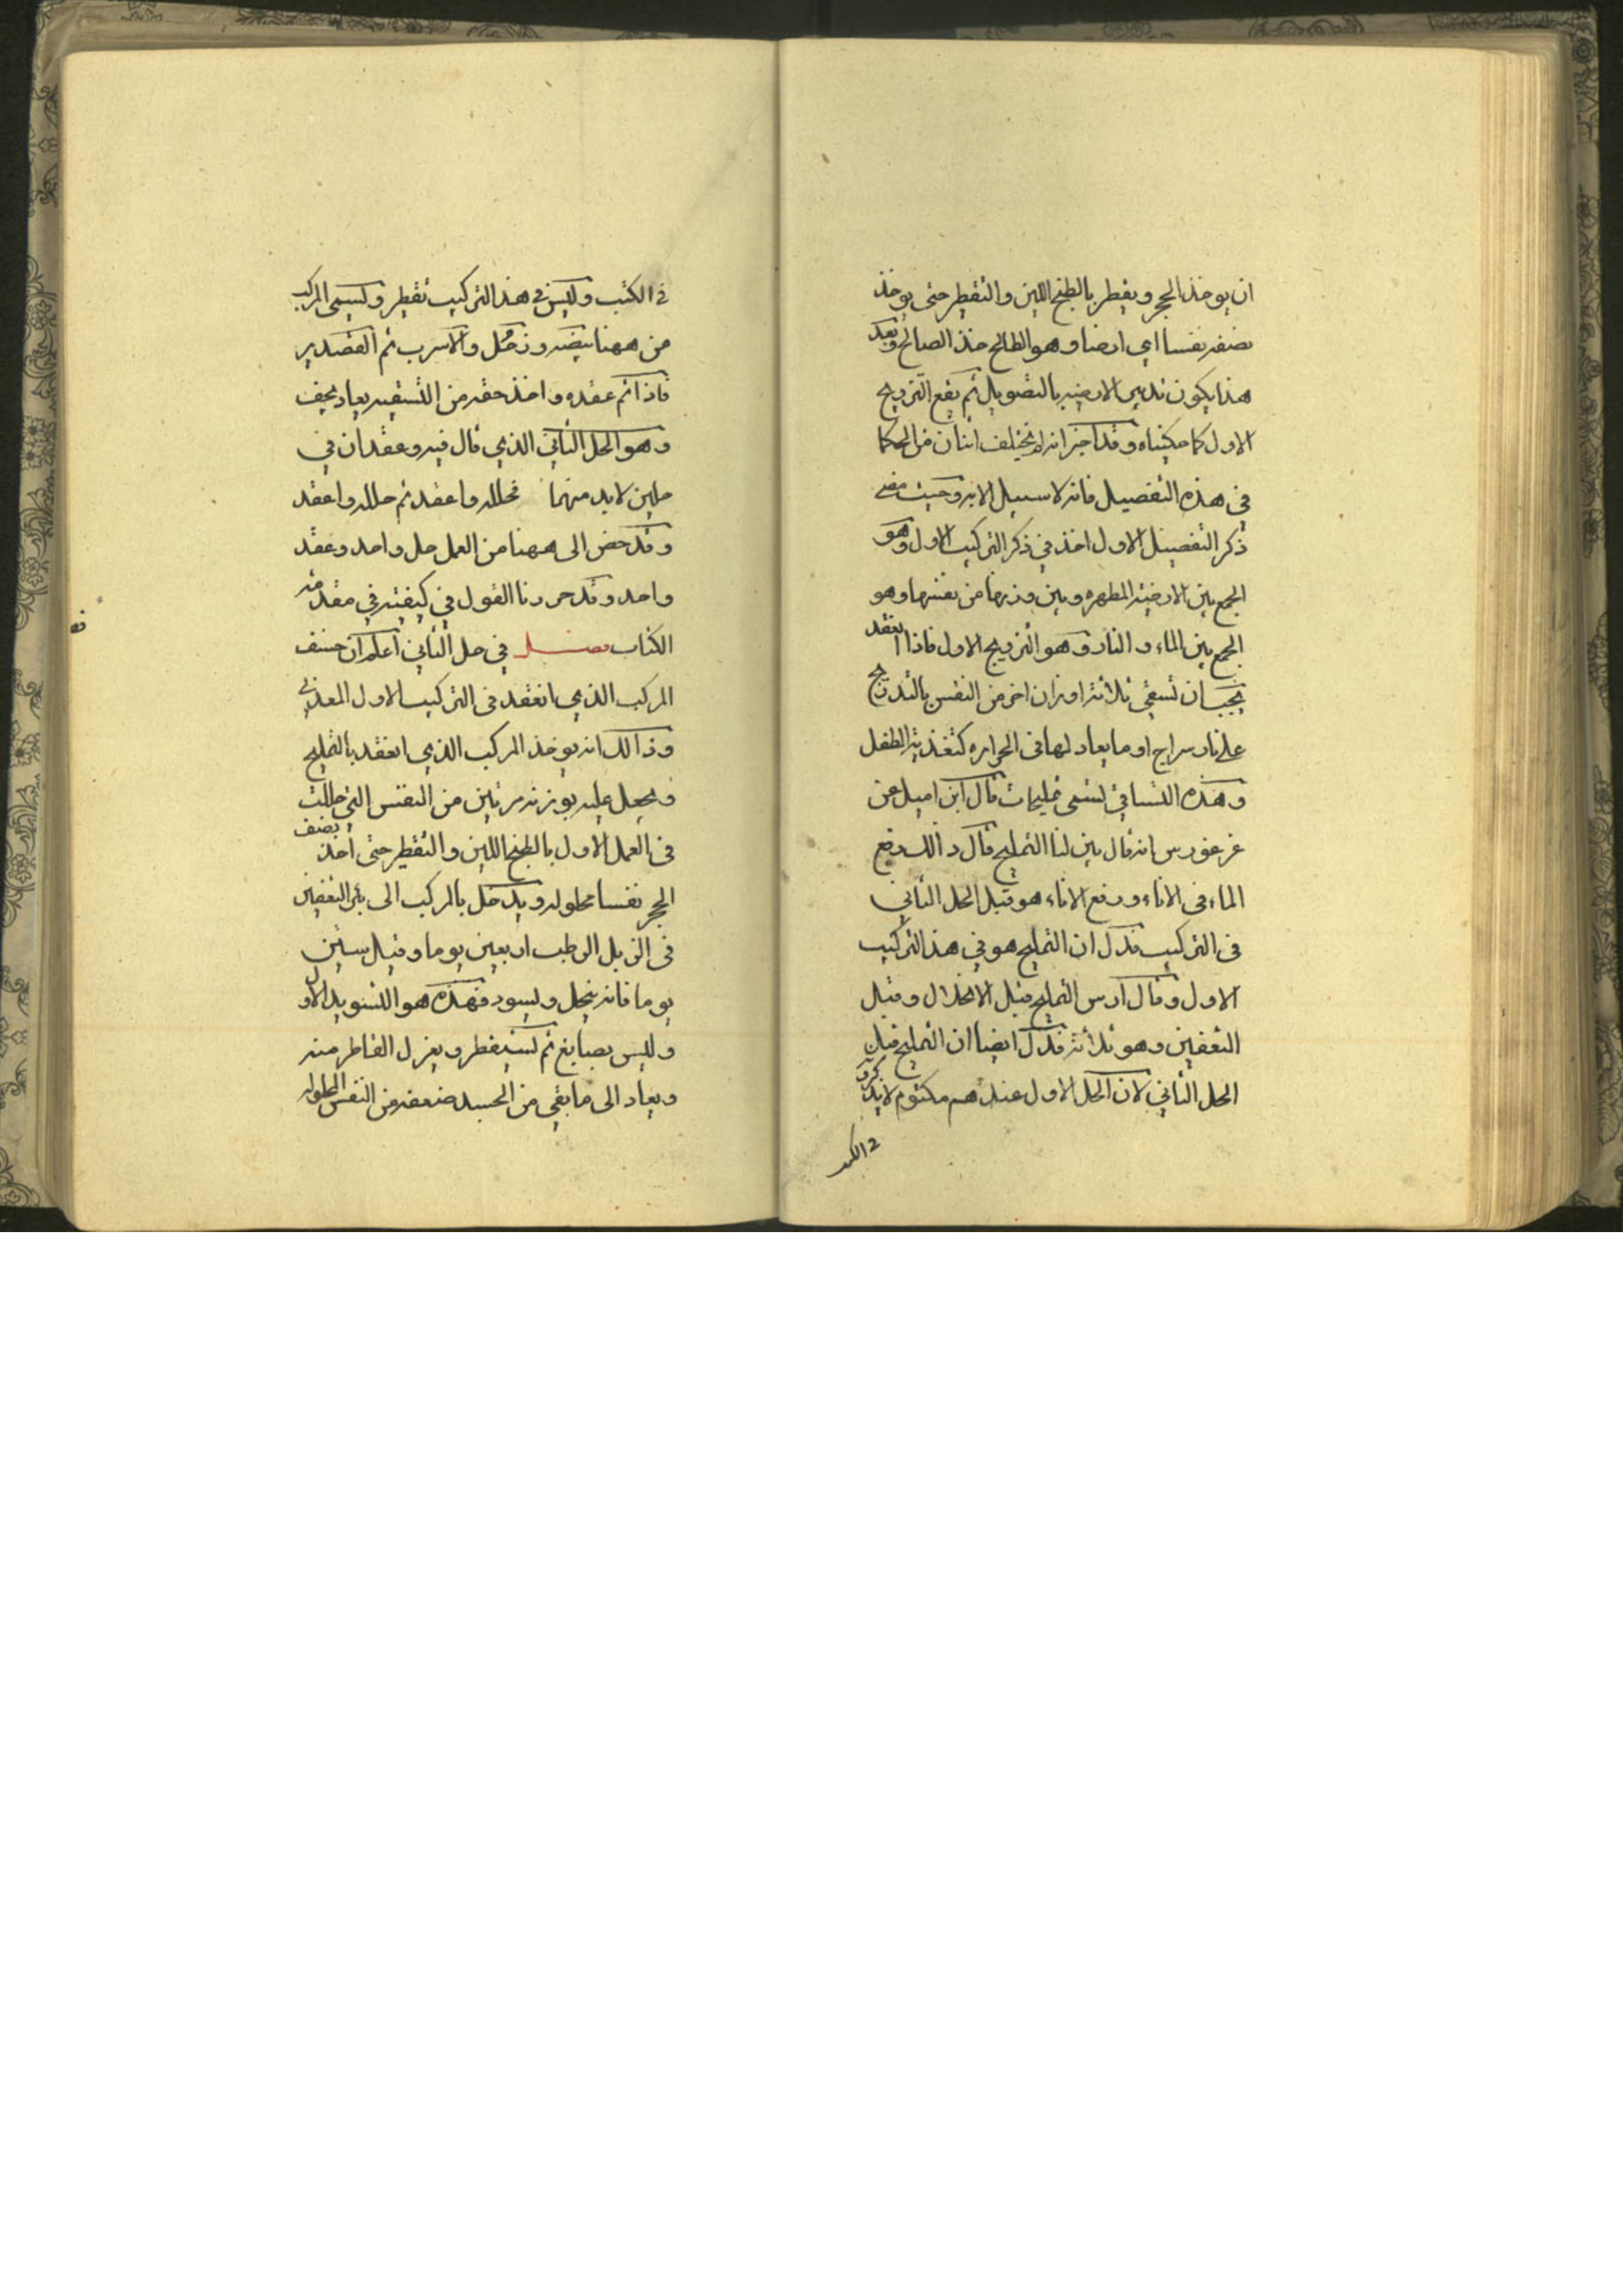 ان يوخذ الحجر ويقطر بالطبخ اللين والتقطير حتى يوخذ
نصفه نفسا اي ارضا وهو الطالح خذ الصالح وبعد
هذا يكون تدبير الارضيه بالتصويل ثم يقع التزويج
الاول كما حكيناه وقد اخبر انه لم يختلف اثنان من الحكما
في هذه التفصيل فانه لا سبيل الا به وحيث مضى
ذكر التفصيل الاول اخذ في ذكر التركيب الاول وهو
الجمع بين الارضيه المطهره وبين وزنها من نفسها وهو
الجمع بين الماء والنار وهو التزويج الاول فاذا انعقد
يجب ان تسقي ثلاثة اوزان اخر من النفس بالتدريج
على نار سراج او ما يعادلها في الحراره كتغذية الطفل
وهذه التساقي تسمى تمليحات قال ابن اميل عن
غرغورس انه قال بين لنا التمليح قال ذالك رفع
الماء في الاناء ورفع الاناء هو قبل الحل الثاني
في التركيب فدل ان التمليح هو في هذا التركيب
الاول وقال ارس التمليح قبل الانحلال وقبل
التعفين وهو ثلاثة فدل ايضا ان التمليح قبل
الحل الثاني لان الحل الاول عندهم مكتوم لا يذكرو
في الكتب
في الكتب وليس في هذا التركيب تقطير ويسمى المركب
من ههنا بيضه وزحل والاسرب ثم القصدير
فاذا تم عقده واخذ حقه من التسقيه يعاد يجف
وهو الحل الثاني الذي قال فيه وعقدان في
حلين لابد منهما فحلله واعقد ثم حلله واعقد
وقد حض الى ههنا من العمل حل واحد وعقد
واحد وقد حررنا القول في كيفيته في مقدمة
الكتاب فصل في حل الثاني اعلم ان
المركب الذي انعقد في التركيب الاول المعدني
وذالك انه يوخذ المركب الذي انعقد بالتمليح
ويجعل عليه بوزنه مرتين من النفس التي حللت
في العمل الاول بالطبخ اللين والتقطير حتى اخذ نصف
الحجر نفسا محلوله ويدخل بالمركب الى بئر التعفين
في الزبل الرطب اربعين يوما وقيل ستين
يوما فانه ينحل ويسود فهذه هو التسويد الاول
وليس بصابغ ثم يستقطر ويعزل القاطر منه
ويعاد الى ما بقي من الجسد ضعفه من النفس المحلوله